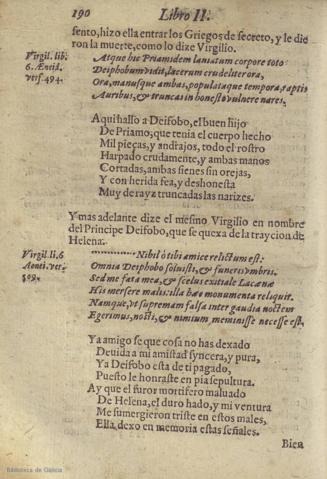 190 Libro II.
sento, hizo ella entrar los Griegos de secreto, y le die
ron la muerte, como lo dize Virgilio.
Virgil. lib.
6. Æneid.
vers. 494.
Atque hic Priamidem laniatum corpore toto
Deiphobum vidit, lacerum crudeliter ora,
Ora, manusque ambas, populataque tempora, raptis
Auribus, & truncas inhonesto vulnere nares.
Aqui hallo a Deifobo, el buen hijo
De Priamo; que tenia el cuerpo hecho
Mil pieças, y andrajos, todo el rostro
Harpado crudamente, y ambas manos
Cortadas, ambas sienes sin orejas,
Y con herida fea, y deshonesta
Muy de rayz truncadas las narizes.
Y mas adelante dize el mesmo Virgilio en nombre
del Principe Deifobo, que se quexa de la traycion de
Helena.
Virgil. li. 6
509.
Nihil ò tibi amice relictum est:
Omnia Deiphobo solvisti, & funeris vmbris.
Sed me fata mea, & scelus exitiale Lacænæ
His mersere malis: illa hæc monumenta reliquit.
Namque, vt supremam falsa inter gaudia noctem
Egerimus, nosti, & nimium meminisse necesse est.
Ya amigo se que cosa no has dexado
Deuida a mi amistad syncera, y pura,
Ya Deifobo esta de ti pagado,
Puesto le honraste en pia sepultura.
Ay que el furor mortifero maluado
De Helena, el duro hado, y mi ventura
Me sumergieron triste en estos males,
Ella dexo en memoria estas señales.
Bien
Biblioteca de Galicia